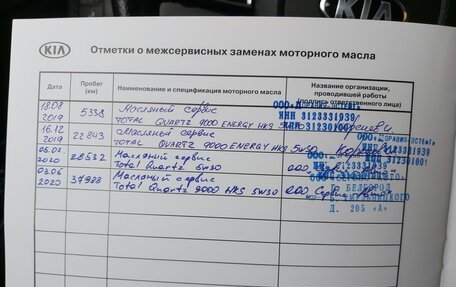 KIA
Отметки о межсервисных заменах моторного масла
Дата
Пробег (км)
Наименование и спецификация моторного масла
Название организации, проводившей работы (подпись ответственного лица)
18.08 2019
5338
Масляный сервис
TOTAL QUARTZ 9000 ENERGY HKS 5W30
ИНН 3123331939
312301001
16.12 2019
22843
Масляный сервис
TOTAL QUARTZ 9000 ENERGY HKS 5W30
05.02 2020
28532
Масляный сервис
Total Quartz
5W30
3123331939
312301001
03.06 2020
37988
Масляный сервис
Total Quartz 9000 HKS 5W30
ООО Сервис
Г. БЕЛГОРОД
Д. 205 «А»